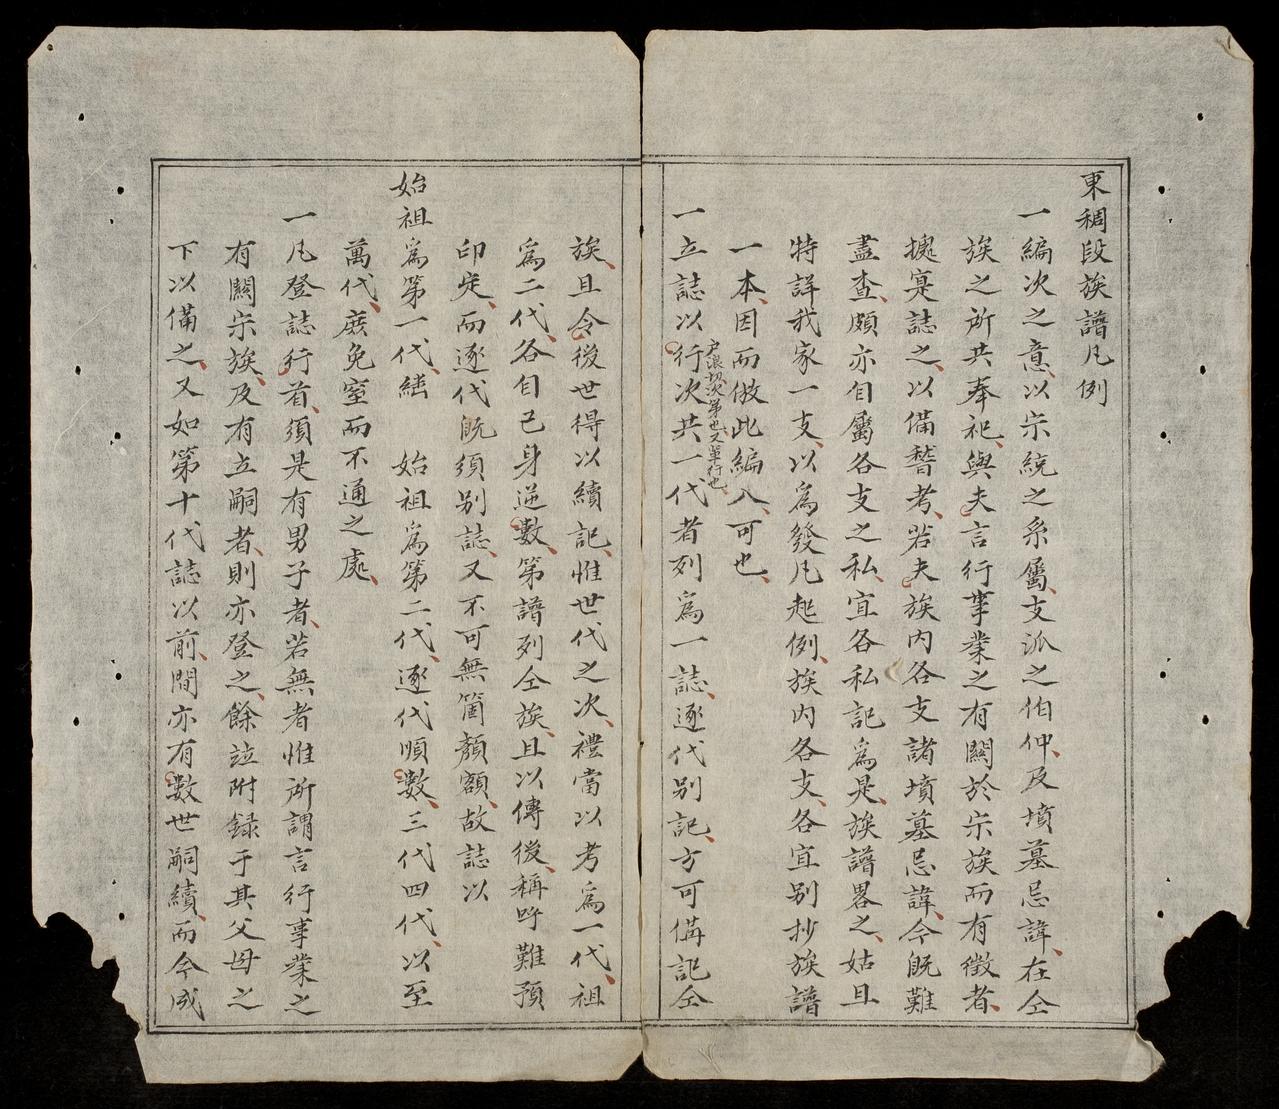 東稠段族譜凡例
一編次之意、以宗統之系屬、支派之伯仲、及墳墓忌諱、在仝
族之所共奉祀、與夫言行事業之有關於宗族而有徵者、
攄寔誌之、以備嵇考、若夫族内各支諸墳墓忌諱、今旣難
盡查、頗亦自屬各支之私、宜各私記爲是、族譜畧之、姑且
特詳我家一支、以爲發凡起例、族内各支、各宜别抄族譜
一本、因而倣此編入、可也、
一立誌以行户浪切次第也又單行也次共一代者列爲一誌、逐代别記、方可備記仝
族、且令後世得以續記、惟世代之次、禮當以考爲一代、祖
爲二代、各自己身逆數、第譜列仝族、且以傳後、稱呼難預
印定、而逐代旣須别誌、又不可無箇顏額、故誌以
始祖爲第一代、継　始祖爲第二代、逐代順數、三代四代、以至
萬代、庶免窒而不通之處、
一凡登誌行首、須是有男子者、若無者惟所謂言行事業之
有關宗族、及有立嗣者、則亦登之、餘竝附録于其父母之
下以備之、又如第十代誌以前、間亦有數世嗣續、而今成